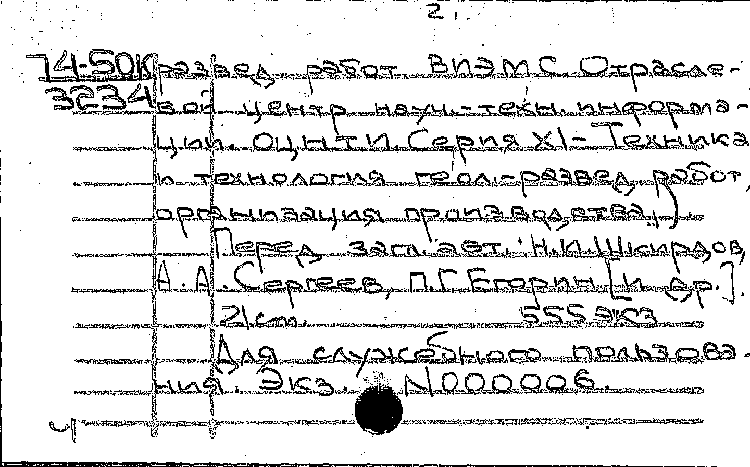 2.
74-50К развед работ ВИЭМС Отрасле-
3234 вой центр научн.-техн. информа-
ции. ОЦНТИ Серия XI-Техника
и технология геол.-развед. работ,
организация производства.)
Перед загл. авт.: Н.И. Шкирдов,
А.А. Сергеев, П.Г. Егорин [и др.].
21 ст. 555 экз
Для служебного пользова-
ния. Экз. N000006.